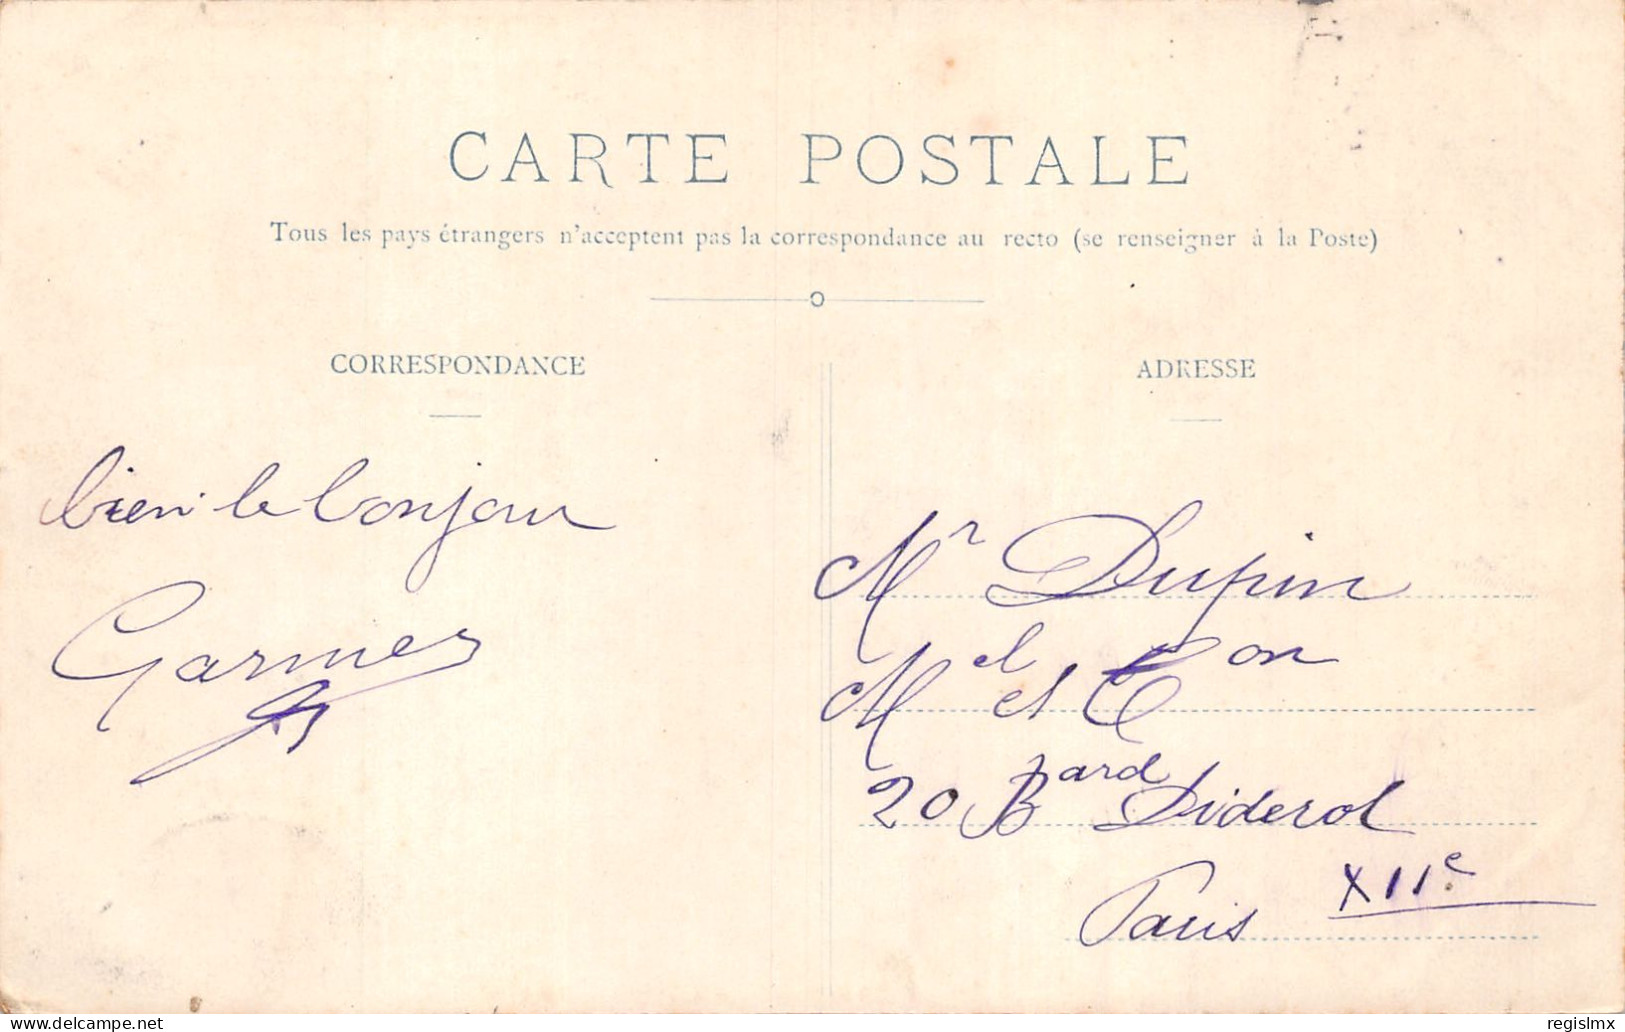 CARTE POSTALE
Tous les pays étrangers n'acceptent pas la correspondance au recto (se renseigner à la Poste)
CORRESPONDANCE
bien le bonjour
Garmes
ADRESSE
Mr Dupin
Mel et Con
20 Bard Diderot
Paris XIIe
www.delcampe.net
regislmx